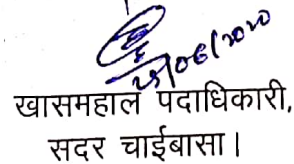 25/06/2020
खासमहाल पदाधिकारी,
सदर चाईबासा।